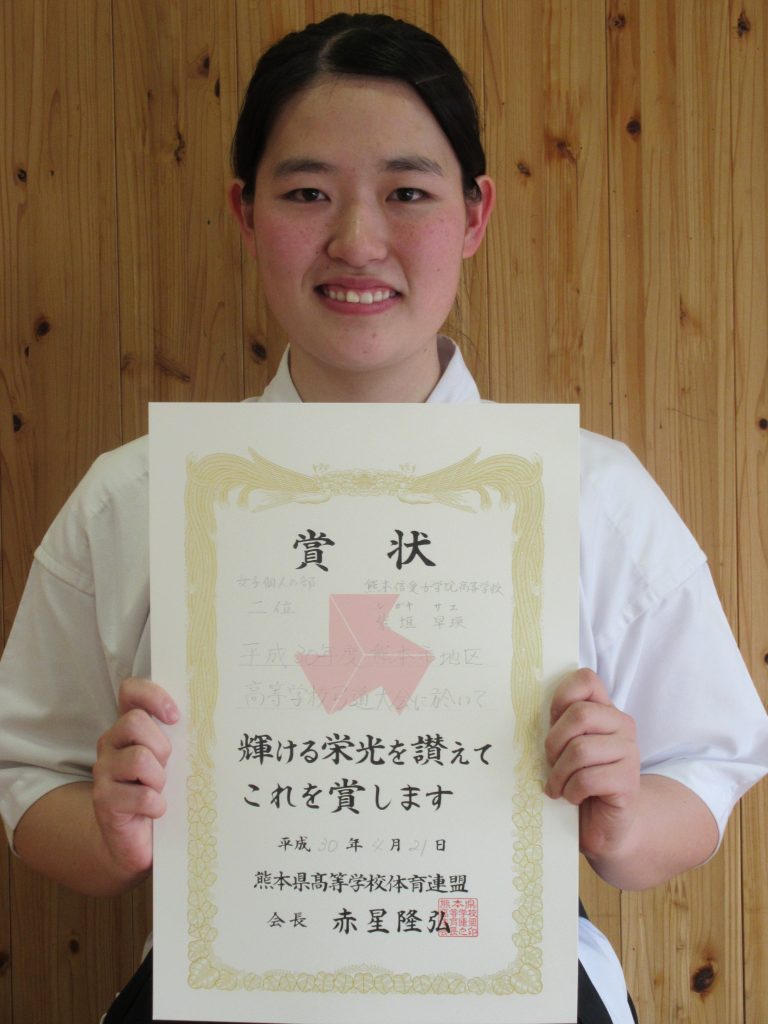 賞状
女子個人の部
熊本信愛女学院高等学校
二位
シガキ サエ
柴垣 早瑛
平成30年度熊本市地区
高等学校弓道大会に於いて
輝ける栄光を讃えて
これを賞します
平成30年4月21日
熊本県高等学校体育連盟
会長 赤星隆弘